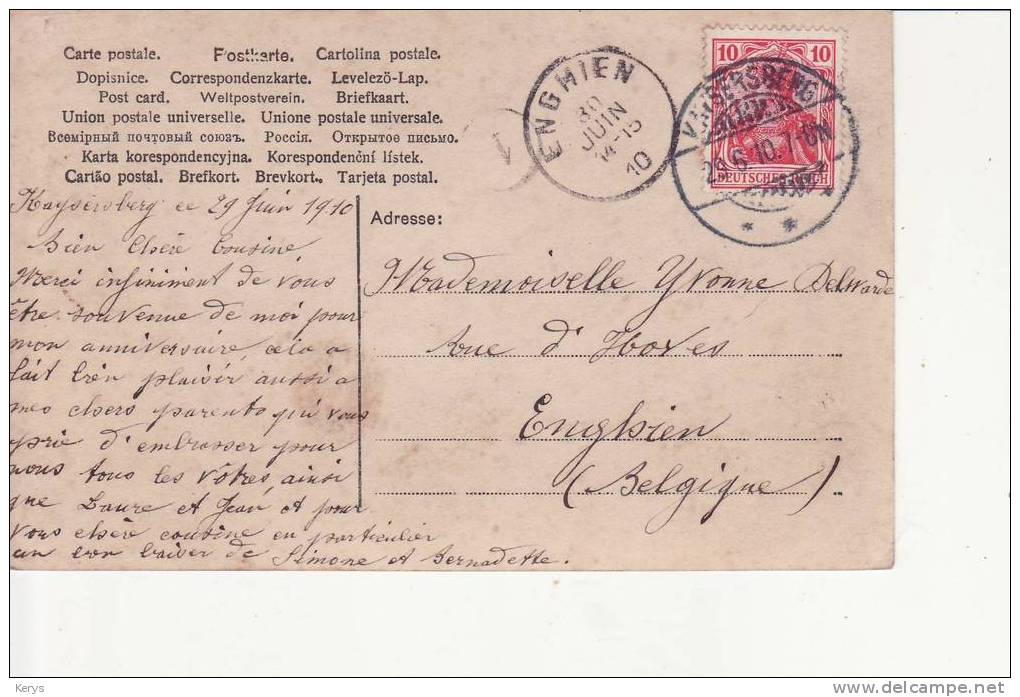 Carte postale. Postkarte. Cartolina postale.
Dopisnice. Correspondenzkarte. Levelező-Lap.
Post card. Weltpostverein. Briefkaart.
Union postale universelle. Unione postale universale.
Всемірный почтовый союзъ. Россія. Открытое письмо.
Karta korespondencyjna. Korespondenční lístek.
Cartão postal. Brefkort. Brevkort. Tarjeta postal.
ENGHIEN
30
JUIN
14-15
10
10 10
DEUTSCHES REICH
KAYSERSBERG
29.6.10.7-8N
* *
Kaysersberg ce 29 Juin 1910
Bien chère Cousine
Merci infiniment de vous
être souvenue de moi pour
mon anniversaire, cela a
fait bien plaisir aussi a
mes chers parents qui vous
prie d'embrasser pour
nous tous les vôtres ainsi
que Laure et Jean et pour
vous chère cousine en particulier
un bon baiser de Simone et Bernadette.
Adresse:
Mademoiselle Yvonne Delwarde
Rue d'Hoves
Enghien
(Belgique)
Kerys
www.delcampe.net